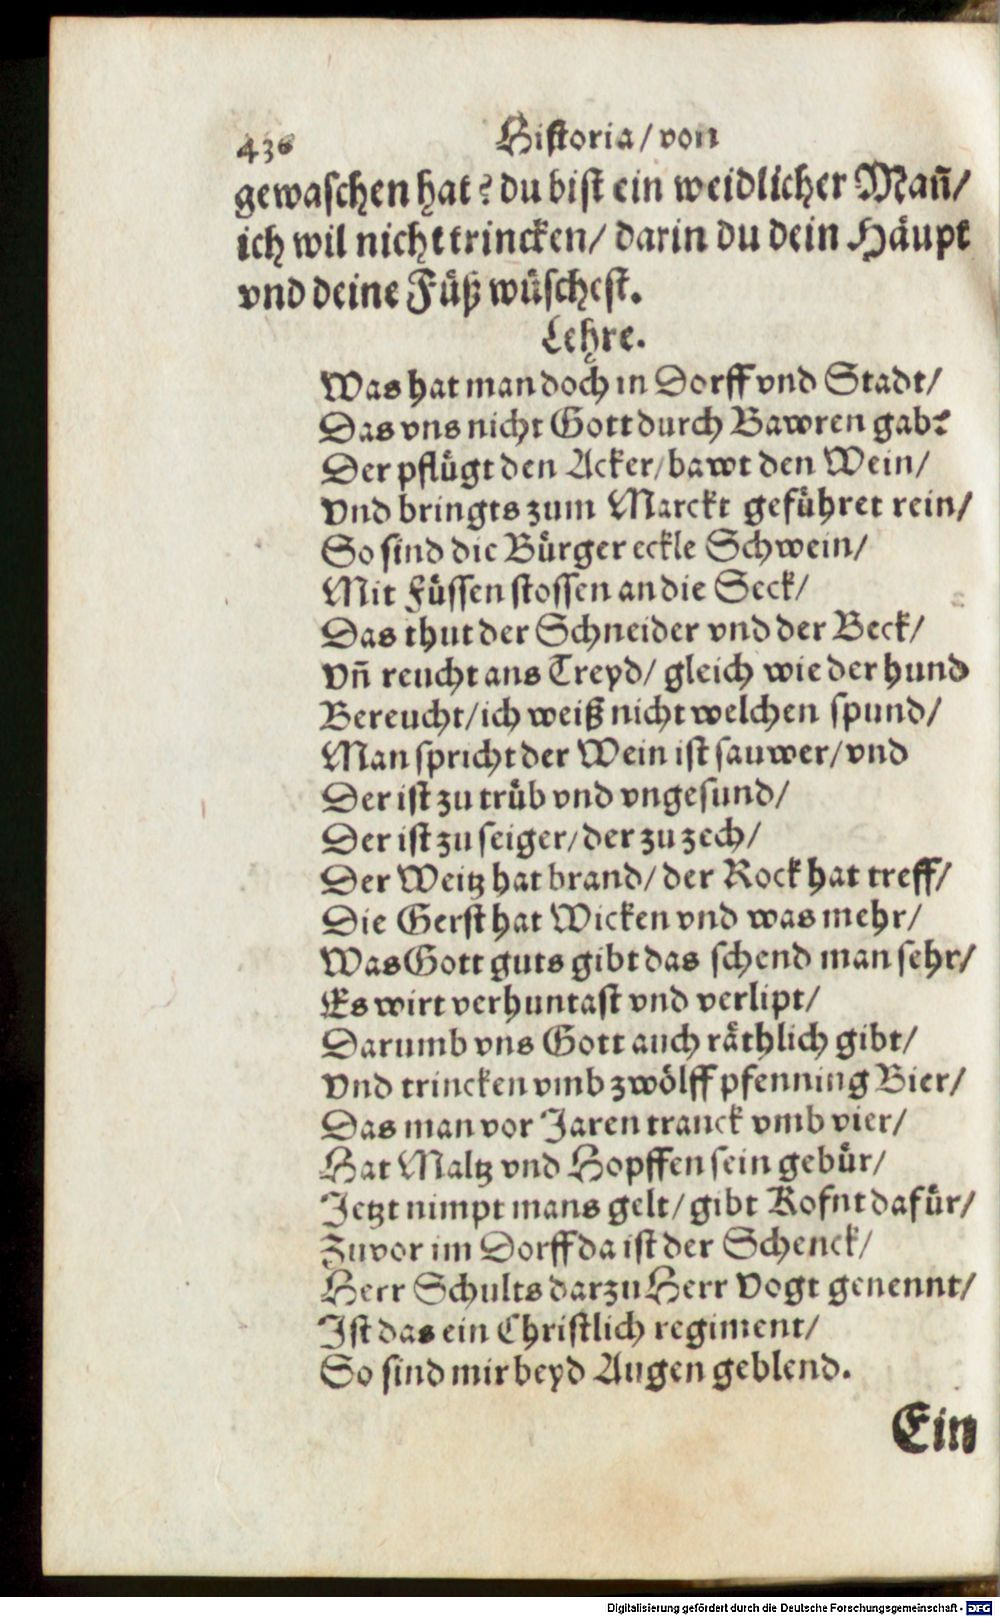 436 Historia / von
gewaschen hat? du bist ein weidlicher Mañ /
ich wil nicht trincken / darin du dein Häupt
vnd deine Füß wüschest.
Lehre.
Was hat man doch in Dorff vnd Stadt /
Das vns nicht Gott durch Bawren gab?
Der pflügt den Acker / bawt den Wein /
Vnd bringts zum Marckt geführet rein /
So sind die Bürger eckle Schwein /
Mit Füssen stossen an die Seck /
Das thut der Schneider vnd der Beck /
Vñ reucht ans Treyd / gleich wie der hund
Bereucht / ich weiß nicht welchen spund /
Man spricht der Wein ist sauwer / vnd
Der ist zu trüb vnd vngesund /
Der ist zu seiger / der zu zech /
Der Weitz hat brand / der Rock hat treff /
Die Gerst hat Wicken vnd was mehr /
Was Gott guts gibt das schend man sehr /
Es wirt verhuntast vnd verlipt /
Darumb vns Gott auch räthlich gibt /
Vnd trincken vmb zwölff pfenning Bier /
Das man vor Jaren tranck vmb vier /
Hat Maltz vnd Hopffen sein gebür /
Jetzt nimpt mans gelt / gibt Kofnt dafür /
Zuvor im Dorff da ist der Schenck /
Herr Schults darzu Herr Vogt genennt /
Ist das ein Christlich regiment /
So sind mir beyd Augen geblend.
Ein
Digitalisierung gefördert durch die Deutsche Forschungsgemeinschaft - DFG